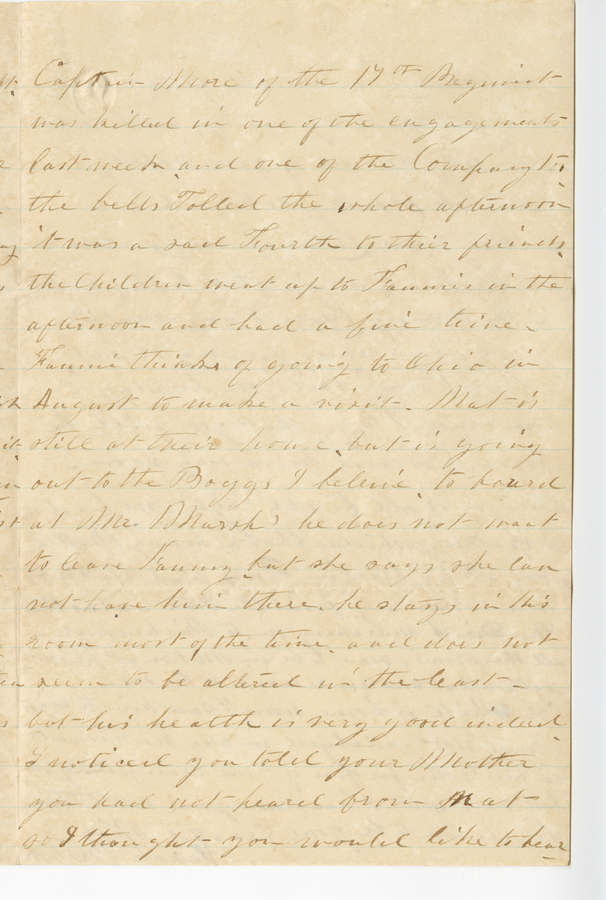 Captain More of the 17th Regiment
was killed in one of the engagements
last week, and one of the Company to,
the bells Tolled the whole afternoon
it was a sad Fourth to their friends,
the Children went up to Fannies in the
afternoon and had a fine time.
Fannie thinks of going to Ohio in
August to make a visit. Mat is
still at their house, but is going
out to the Boggs I believe, to board
at Mr. Marsh's he does not want
to leave Fanny, but she says she can
not have him there. he stays in his
room most of the time, and does not
seem to be altered in the least -
but his health is very good indeed.
I noticed you told your Mother
you had not heard from Mat
so I thought you would like to hear